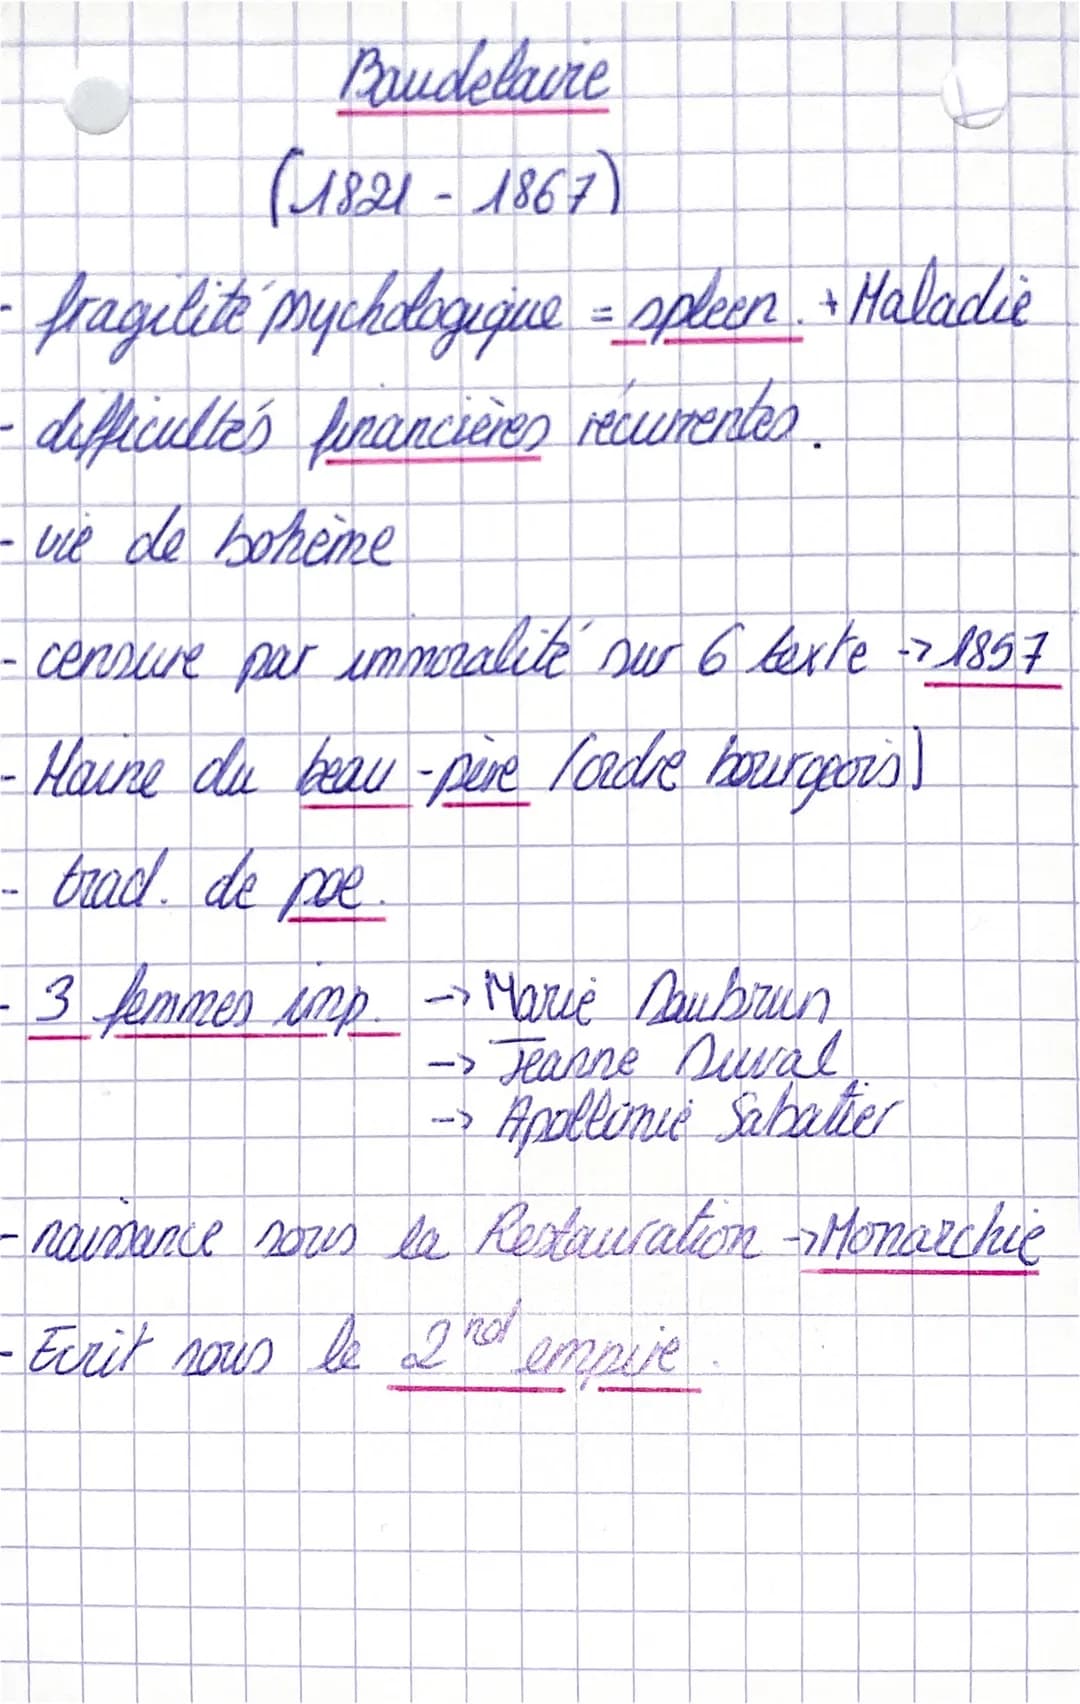 Baudelaire
(1821 - 1867)
- fragilité psychologique = spleen. + Maladie
- difficultés financières récurrentes.
- vie de bohème
- censure par immoralité sur 6 texte -> 1857
- Haine du beau-père (ordre bourgeois)
- trad. de poe.
- 3 femmes imp. -> Marie Daubrun
-> Jeanne Duval
-> Apollonie Sabatier
- naissance sous la Restauration -> Monarchie
- Ecrit sous le 2nd empire.